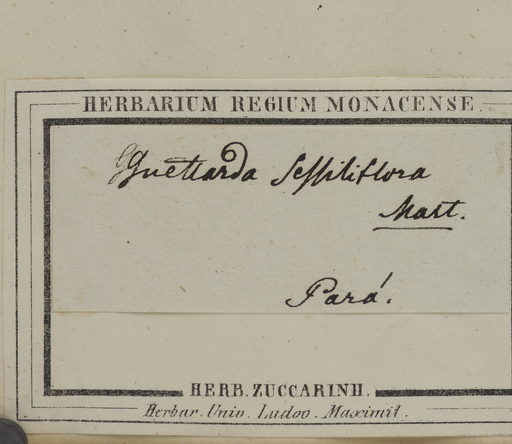 HERBARIUM REGIUM MONACENSE.
Guettarda sessiliflora
Mart.
Pará.
HERB. ZUCCARINII.
Herbar. Univ. Ludov. Maximil.